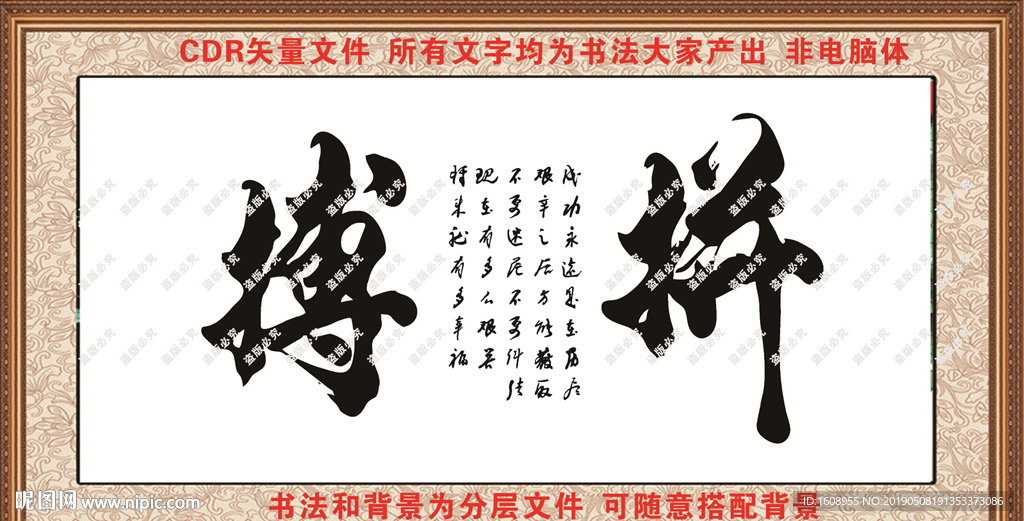 CDR矢量文件 所有文字均为书法大家产出 非电脑体
拼
成功永远是在历尽
艰辛之后方能获取
不要迷茫不要纠结
现在有多么艰苦
将来就有多幸福
搏
书法和背景为分层文件 可随意搭配背景
昵图网 www.nipic.com
ID:1608955 NO:20190508191353373086
盗版必究